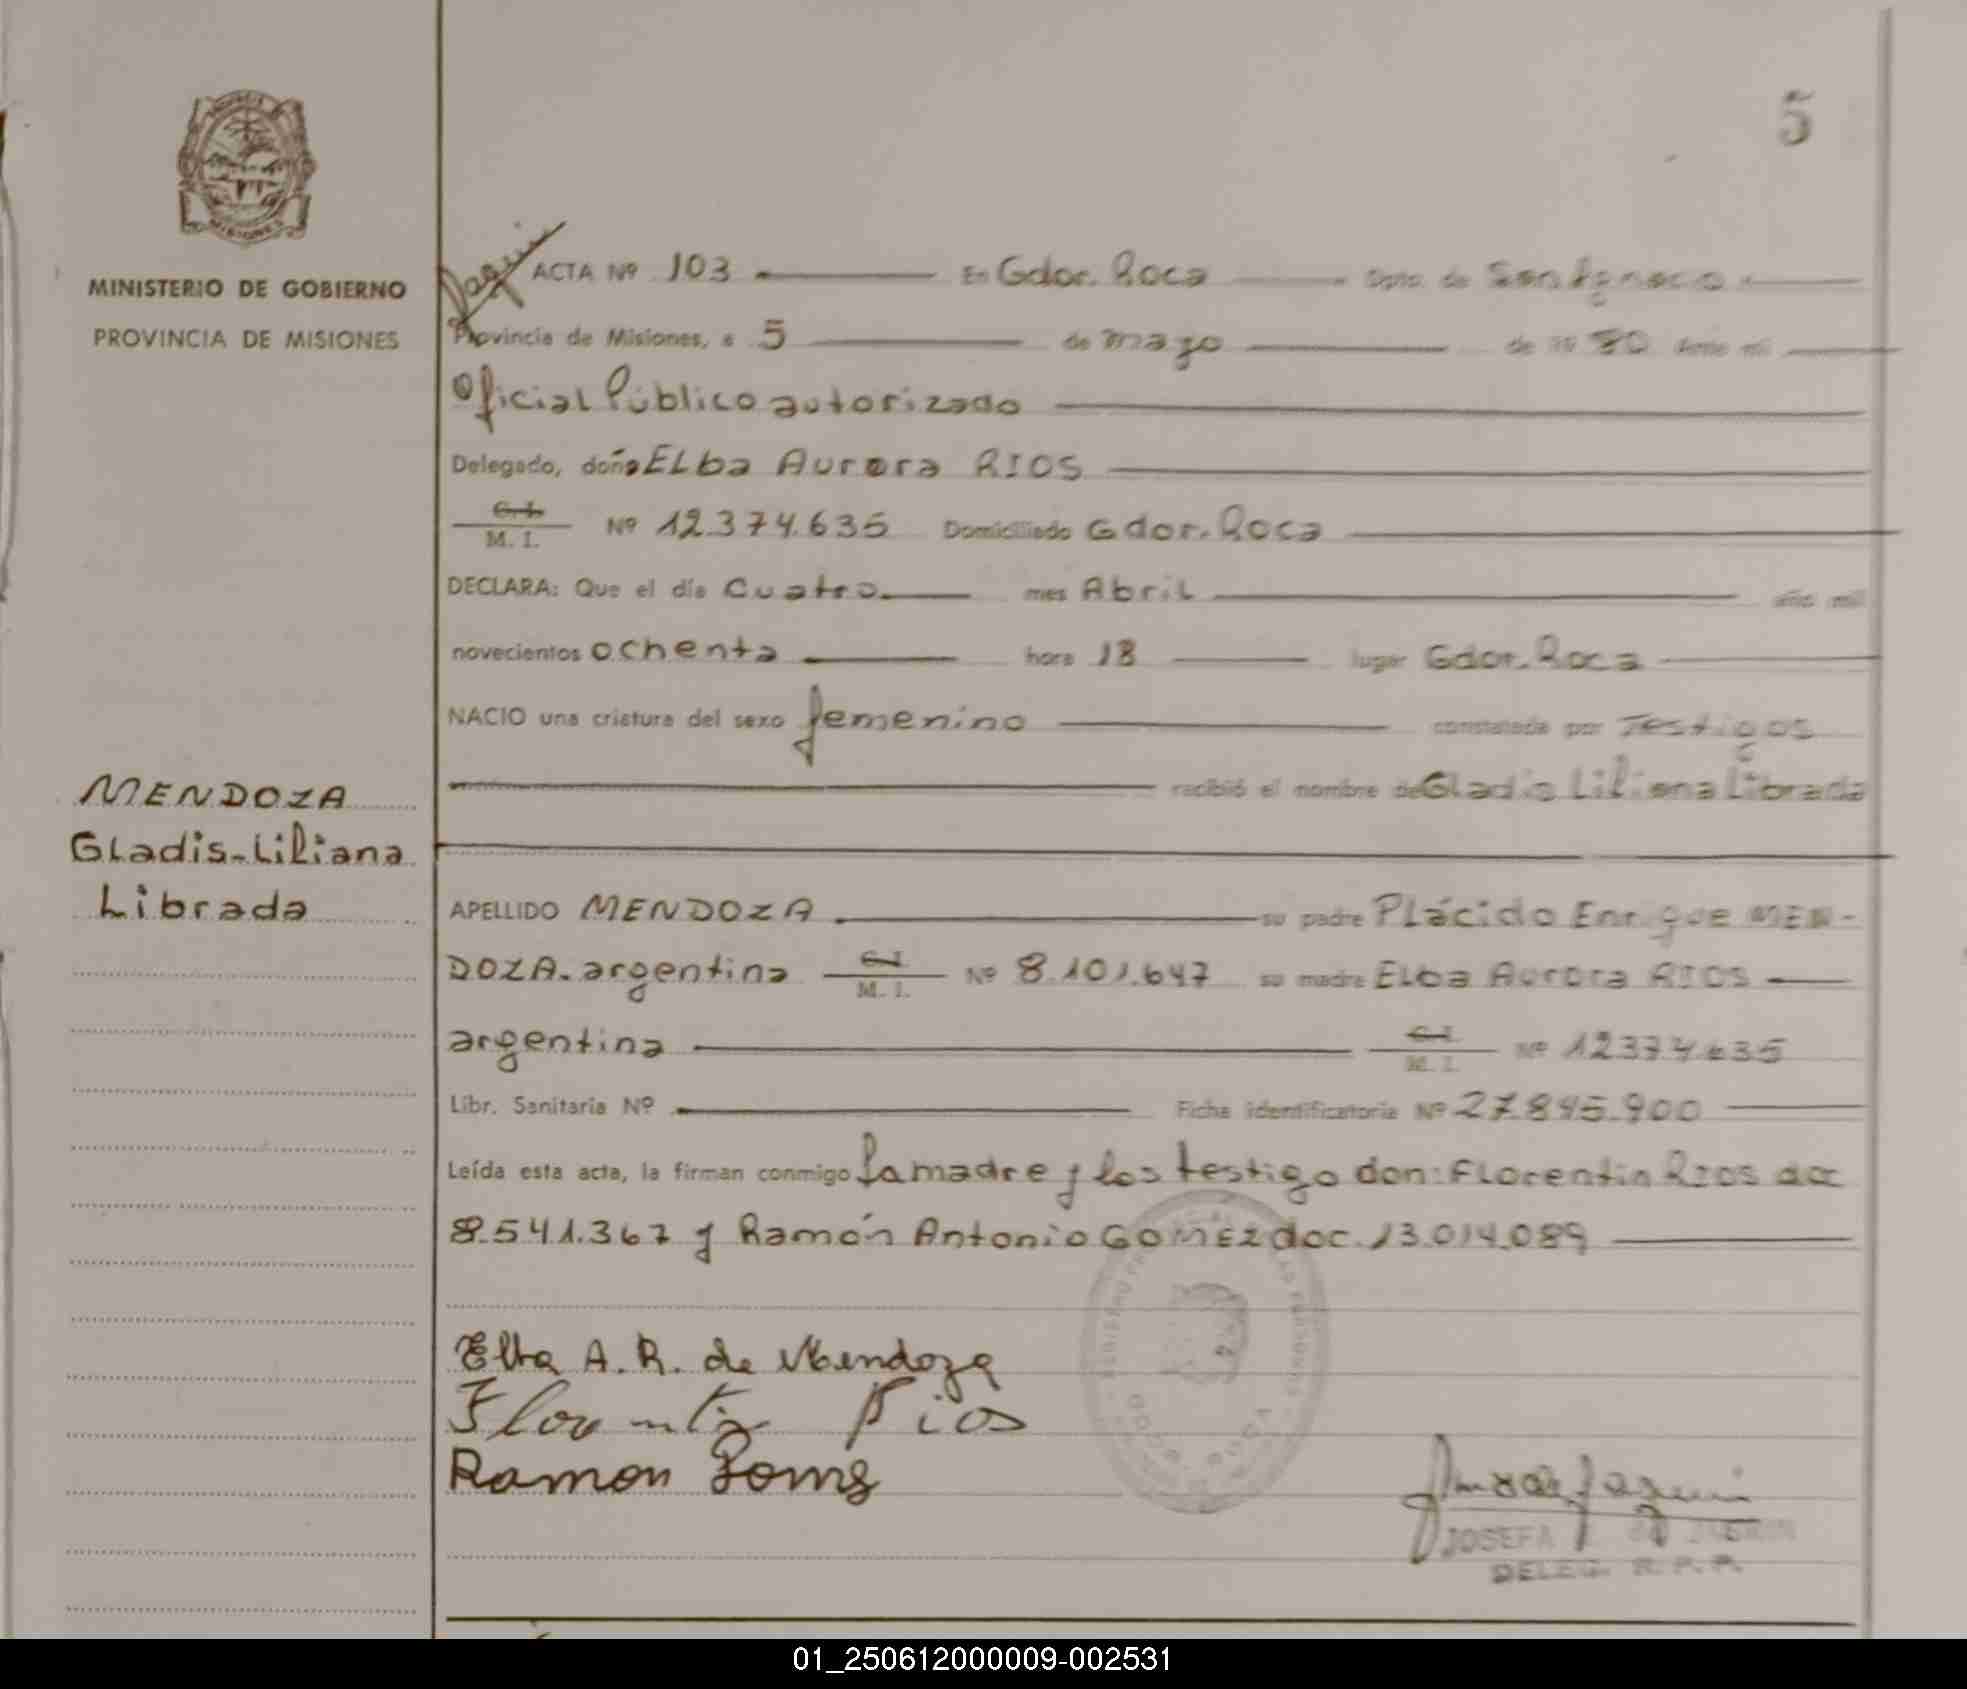 5
MINISTERIO DE GOBIERNO
PROVINCIA DE MISIONES
ACTA Nº 103 En Gdor. Roca Dpto. de San Ignacio
Provincia de Misiones, a 5 de mayo de 19 80 Ante mi
Oficial Público autorizado
Delegado, doña Elba Aurora RIOS
C.I.
M. I. Nº 12.374.635 Domiciliado Gdor. Roca
DECLARA: Que el día Cuatro mes Abril año mil
novecientos ochenta hora 18 lugar Gdor. Roca
NACIO una criatura del sexo femenino constatada por Testigos
recibió el nombre de Gladis Liliana Librada
MENDOZA
Gladis-Liliana
Librada
APELLIDO MENDOZA su padre Plácido Enrique MEN-
DOZA. argentina C.I. M. I. Nº 8.101.647 su madre Elba Aurora RIOS
argentina C.I. M. I. Nº 12.374.635
Libr. Sanitaria Nº Ficha identificatoria Nº 27.845.900
Leída esta acta, la firman conmigo la madre y los testigo don: Florentin RIOS doc
8.541.367 y Ramón Antonio GOMEZ doc. 13.014.089
Elba A. R. de Mendoza
Florentin Rios
Ramon Gomez
JOSEFA
DELEG. R. P. P.
01_250612000009-002531